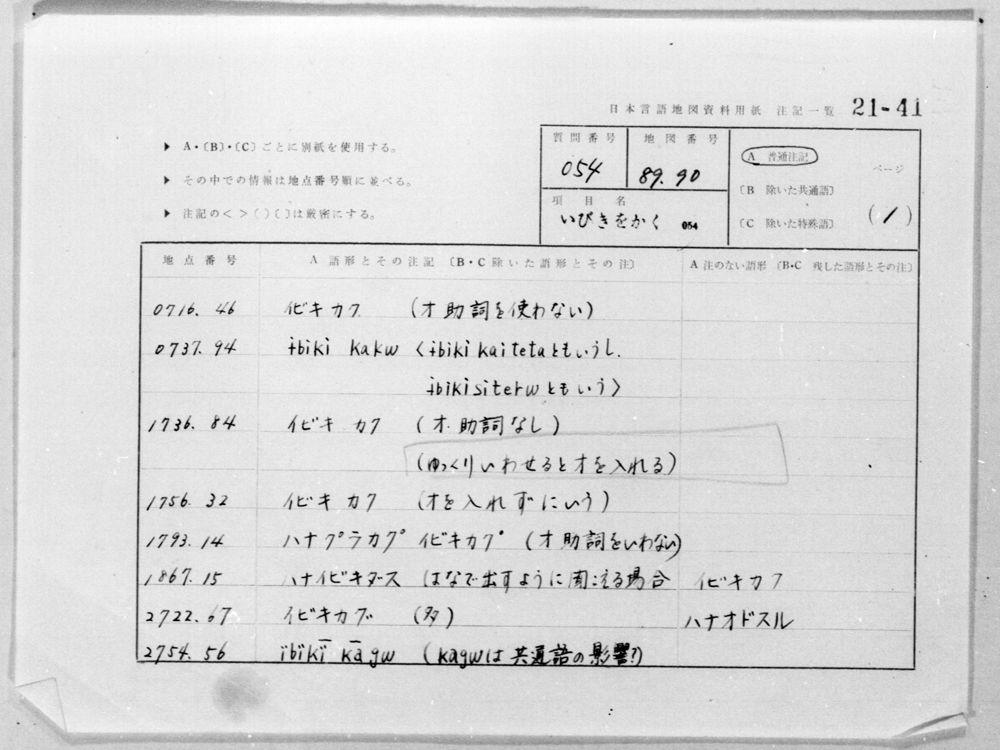 日本言語地図資料用紙 注記一覧 21-41
▶ A・〔B〕・〔C〕ごとに別紙を使用する。
▶ その中での情報は地点番号順に並べる。
▶ 注記の< >( )〔 〕は厳密にする。
質問番号 地図番号
054 89.90
項目名
いびきをかく 054
A 普通注記
〔B 除いた共通語〕
〔C 除いた特殊語〕
ページ
(1)
地点番号 A 語形とその注記 〔B・C 除いた語形とその注〕 A 注のない語形 〔B・C 残した語形とその注〕
0716. 46 イビキカク (オ助詞を使わない)
0737. 94 ɨbiki kakɯ <ɨbiki kaitetaともいうし.
ɨbikisiterɯともいう>
1736. 84 イビキ カク (オ助詞なし)
(ゆっくりいわせるとオを入れる)
1756. 32 イビキ カク (オを入れずにいう)
1793. 14 イビキカク゚ (オ助詞をいわない)
1867. 15 ハナイビキダース はなで出すように聞こえる場合 イビキカク
2722. 67 イビキカグ (多) ハナオドスル
2754. 56 ïbïkï kagɯ (kagɯは共通語の影響?)